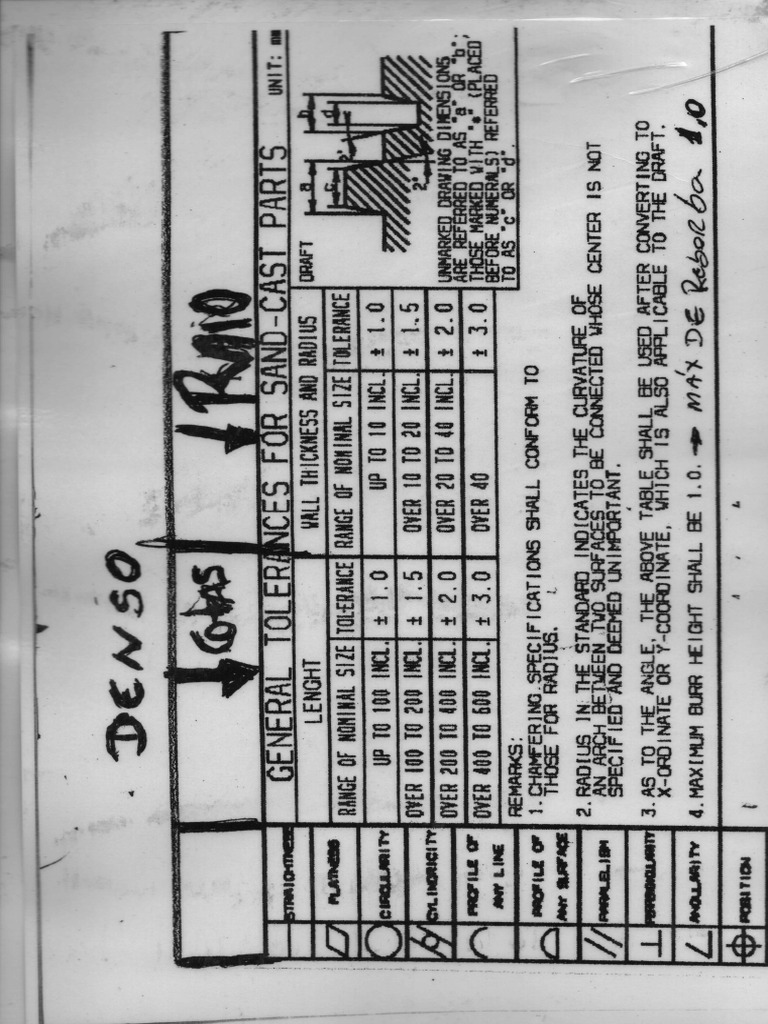 DENSO
Cotas
RAIO
GENERAL TOLERANCES FOR SAND-CAST PARTS
UNIT: mm
LENGHT
WALL THICKNESS AND RADIUS
DRAFT
RANGE OF NOMINAL SIZE TOLERANCE RANGE OF NOMINAL SIZE TOLERANCE
UP TO 100 INCL. ± 1.0 UP TO 10 INCL. ± 1.0
OVER 100 TO 200 INCL. ± 1.5 OVER 10 TO 20 INCL. ± 1.5
OVER 200 TO 400 INCL. ± 2.0 OVER 20 TO 40 INCL. ± 2.0
OVER 400 TO 600 INCL. ± 3.0 OVER 40 ± 3.0
a
c
2°
b
d
2°
UNMARKED DRAWING DIMENSIONS
ARE REFERRED TO AS "a" OR "b";
THOSE MARKED WITH "*" (PLACED
BEFORE NUMERALS) REFERRED
TO AS "c" OR "d".
REMARKS:
1. CHAMFERING SPECIFICATIONS SHALL CONFORM TO
THOSE FOR RADIUS.
2. RADIUS IN THE STANDARD INDICATES THE CURVATURE OF
AN ARCH BETWEEN TWO SURFACES TO BE CONNECTED WHOSE CENTER IS NOT
SPECIFIED AND DEEMED UNIMPORTANT.
3. AS TO THE ANGLE, THE ABOVE TABLE SHALL BE USED AFTER CONVERTING TO
X-ORDINATE OR Y-COORDINATE, WHICH IS ALSO APPLICABLE TO THE DRAFT.
4. MAXIMUM BURR HEIGHT SHALL BE 1.0. → MÁX DE Reborba 1,0
STRAIGHTNESS
FLATNESS
CIRCULARITY
CYLINDRICITY
PROFILE OF
ANY LINE
PROFILE OF
ANY SURFACE
PARALELISM
PERPENDICULARITY
ANGULARITY
POSITION